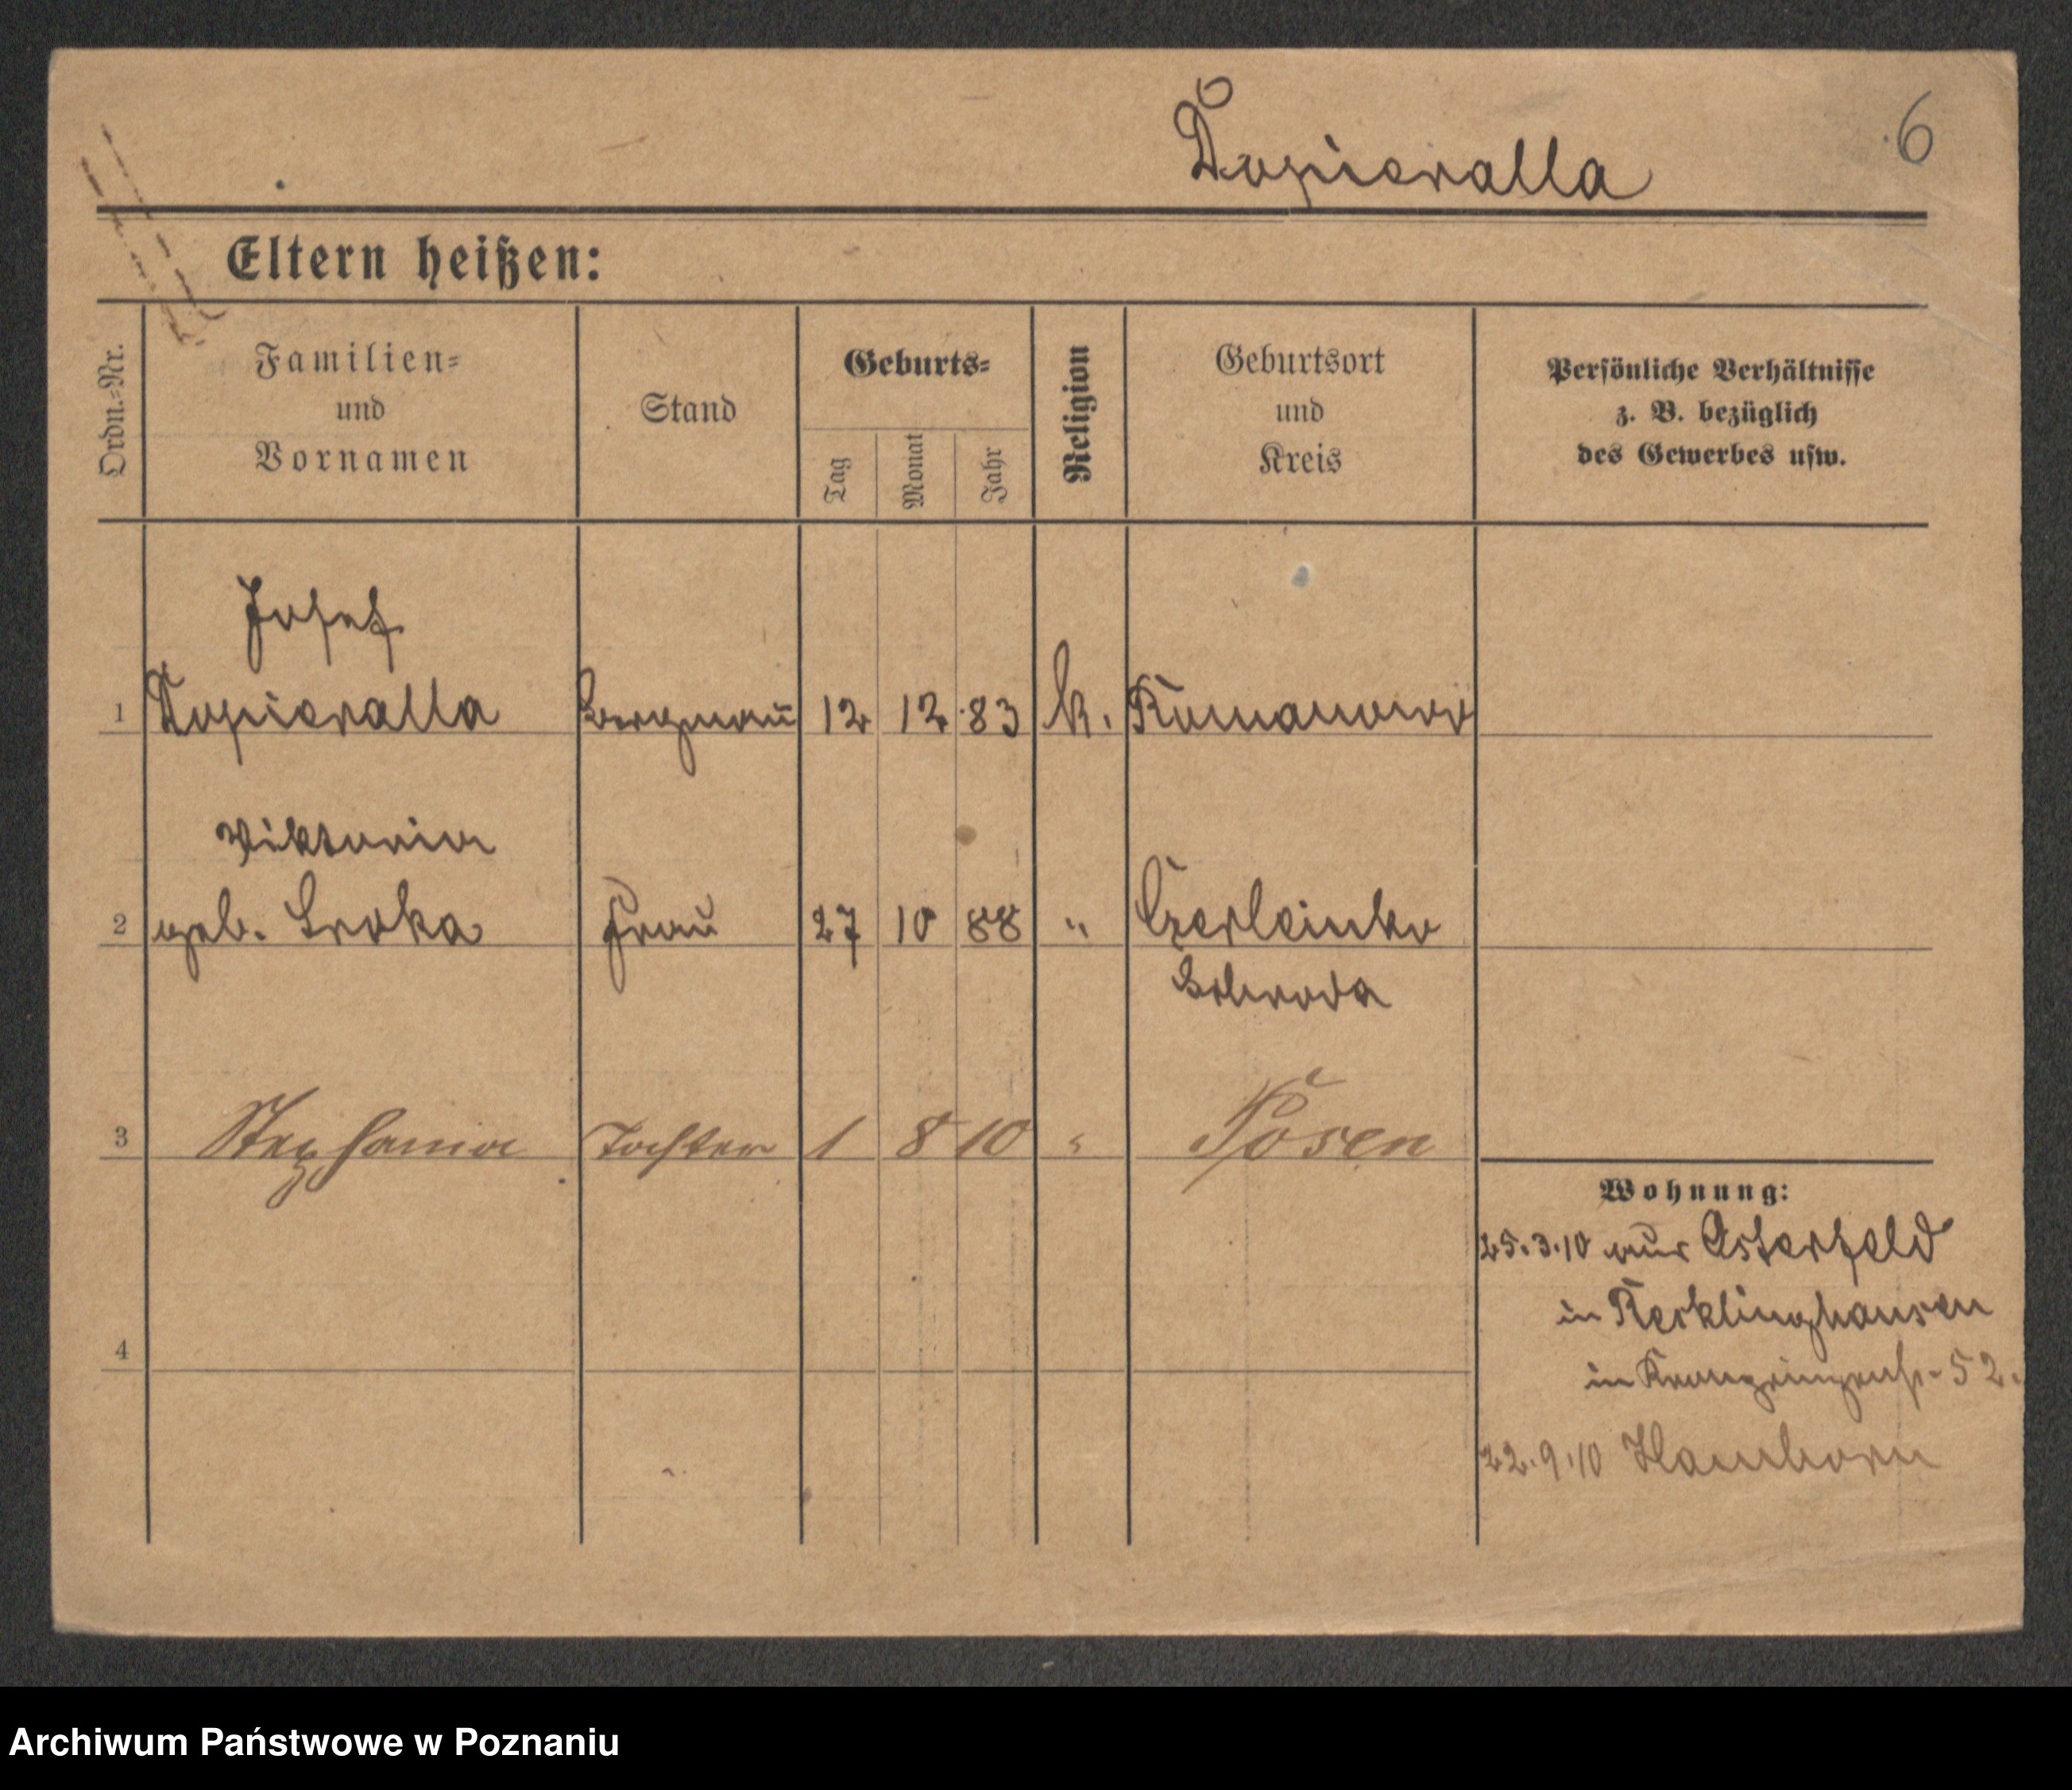 Dopieralla
6
Eltern heißen:
Ordn.-Nr.
Familien-
und
Vornamen
Stand
Geburts-
Tag
Monat
Jahr
Religion
Geburtsort
und
Kreis
Persönliche Verhältnisse
z. B. bezüglich
des Gewerbes usw.
Josef
1 Dopieralla Bergmann 12 12 83 k. Romanowo
Viktoria
2 geb. Sroka Frau 27 10 88 " Czerleinko
Schroda
3 Stephania Tochter 1 8 10 " Posen
Wohnung:
25.3.10 aus Osterfeld
in Recklinghausen
4
in 52.
22.9.10 Hamborn
Archiwum Państwowe w Poznaniu